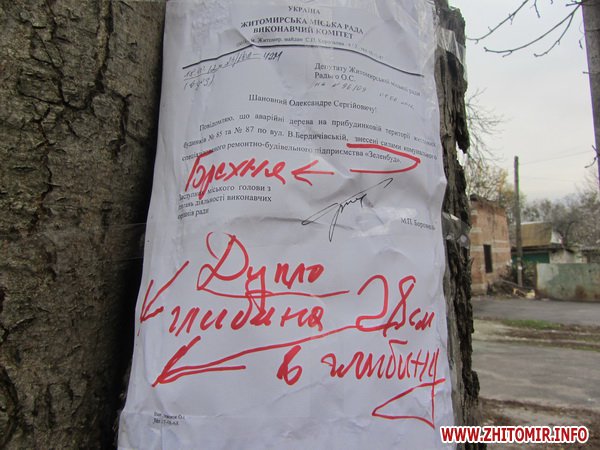 УКРАЇНА
ЖИТОМИРСЬКА МІСЬКА РАДА
ВИКОНАВЧИЙ КОМІТЕТ
м. Житомир, майдан С.П.
Депутату Житомирської міської ради
О.С.
Шановний Олександре Сергійовичу!
Повідомляю, що аварійні дерева на прибудинковій території житлових
будинків № 85 та № 87 по вул. В.Бердичівській, знесені силами комунального
ремонтно-будівельного підприємства «Зеленбуд».
Брехня
міського голови з
діяльності виконавчих
органів ради
М.П.
Дупло
глибина 28 см
в глибину
WWW.ZHITOMIR.INFO